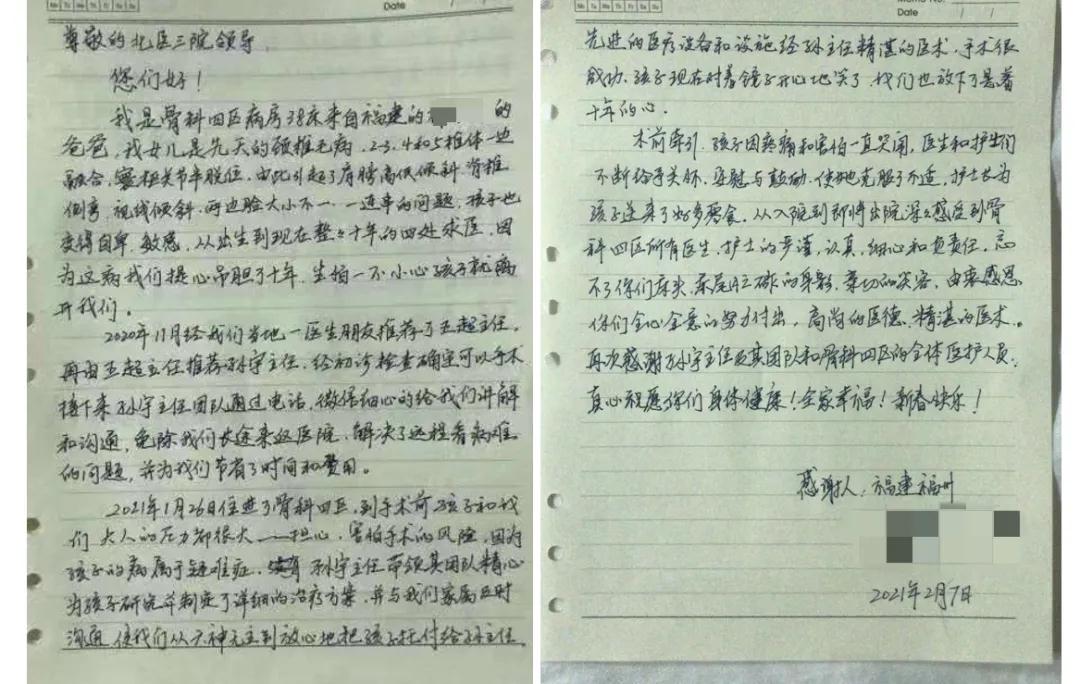 Mo Tu We Th Fr Sa Su
Date / /
尊敬的北医三院领导,
您们好!
我是骨科四区病房38床来自福建的 的
爸爸,我女儿是先天的颈椎毛病,2-3.4和5椎体一边
融合,寰枢关节半脱位,由此引起了肩膀高低倾斜.脊椎
侧弯,视线倾斜.两边脸大小不一.一连串的问题,孩子也
变得自卑.敏感,从出生到现在整整十年的四处求医,因
为这病我们提心吊胆了十年,生怕一不小心孩子就离
开我们。
2020年11月经我们当地一医生朋友推荐了王超主任,
再由王超主任推荐孙宇主任,经初诊检查确定可以手术
接下来孙宇主任团队通过电话,微信细心的给我们讲解
和沟通,免除我们长途来返医院,解决了远程看病难
的问题,并为我们节省了时间和费用。
2021年1月26日住进了骨科四区,到手术前孩子和我
们大人的压力都很大——担心,害怕手术的风险,因为
孩子的病属于疑难症, 孙宇主任带领其团队精心
为孩子研究并制定了详细的治疗方案,并与我们家属及时
沟通,使我们从六神无主到放心地把孩子托付给孙主任,
Memo No.
Mo Tu We Th Fr Sa Su
Date / /
先进的医疗设备和设施经孙主任精湛的医术,手术很
成功,孩子现在对着镜子开心地笑了,我们也放下了悬着
十年的心.
术前牵引,孩子因疼痛和害怕一直哭闹,医生和护士们
不断给予关怀.安慰与鼓励,使她克服了不适,护士长为
孩子送来了好多零食,从入院到即将出院深深感受到骨
科四区所有医生,护士的严谨,认真,细心和负责任,忘
不了你们床头.床尾忙碌的身影,亲切的笑容,由衷感恩
你们全心全意的努力付出,高尚的医德、精湛的医术。
再次感谢孙宇主任及其团队和骨科四区的全体医护人员,
真心祝愿你们身体健康!全家幸福!新春快乐!
感谢人:福建福州
2021年2月7日